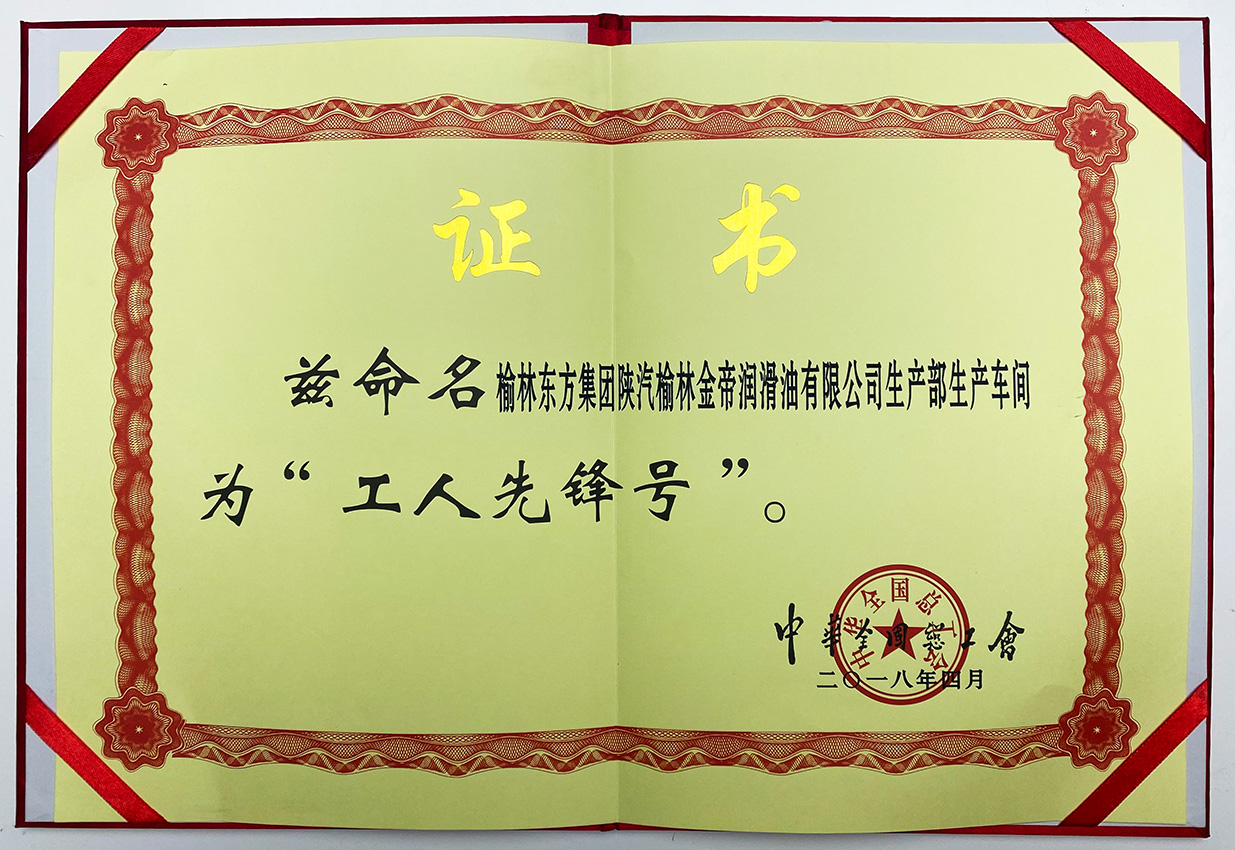 证书
兹命名榆林东方集团陕汽榆林金帝润滑油有限公司生产部生产车间
为“工人先锋号”。
中华全国总工会
中華全国总工會
二〇一八年四月